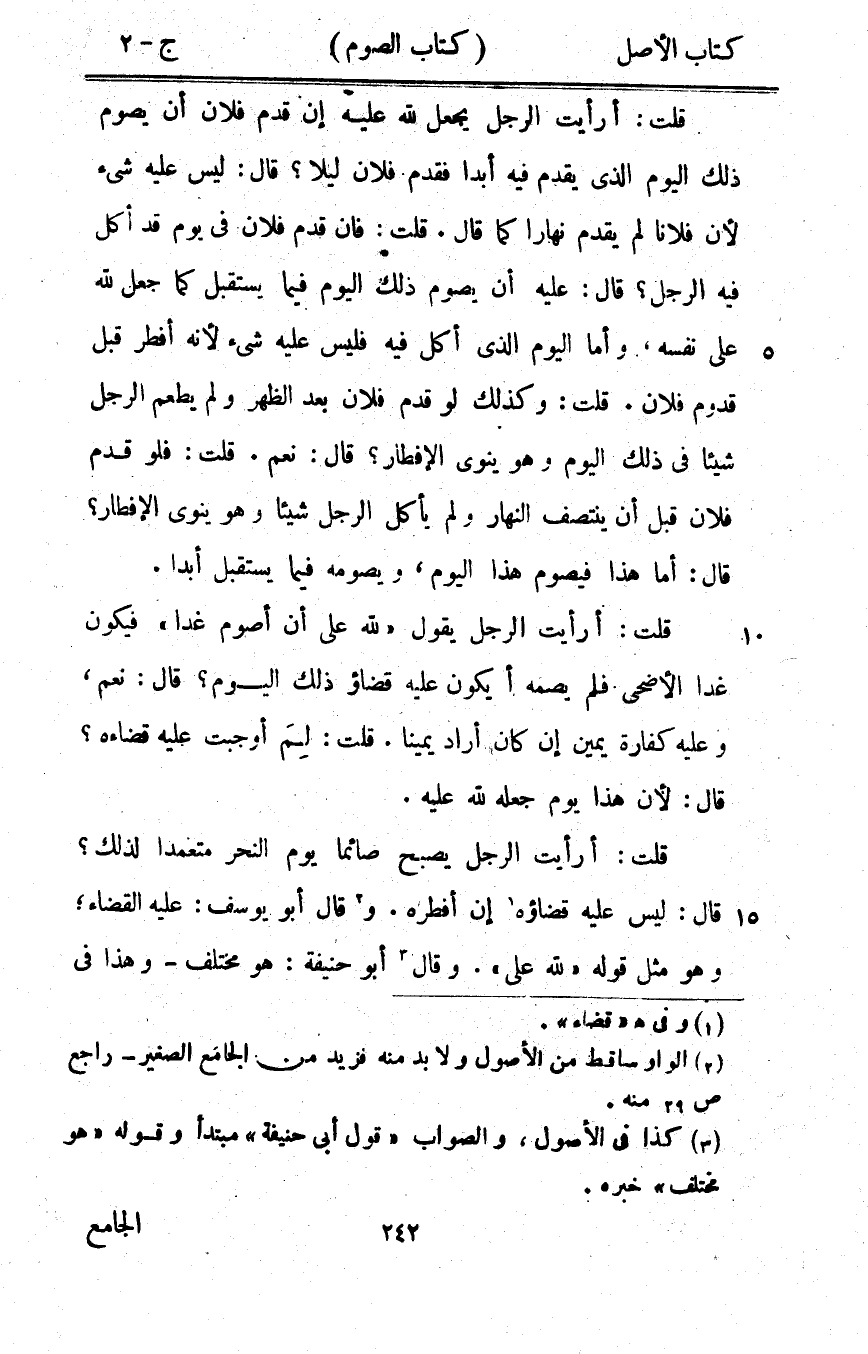 كتاب الأصل (كتاب الصوم) ج - ٢
قلت: أ رأيت الرجل يجعل لله عليه إن قدم فلان أن يصوم
ذلك اليوم الذى يقدم فيه أبدا فقدم فلان ليلا؟ قال: ليس عليه شىء
لأن فلانا لم يقدم نهارا كما قال. قلت: فان قدم فلان فى يوم قد أكل
فيه الرجل؟ قال: عليه أن يصوم ذلك اليوم فيما يستقبل كما جعل لله
٥ على نفسه، و أما اليوم الذى أكل فيه فليس عليه شىء لأنه أفطر قبل
قدوم فلان. قلت: و كذلك لو قدم فلان بعد الظهر و لم يطعم الرجل
شيئا فى ذلك اليوم و هو ينوى الإفطار؟ قال: نعم. قلت: فلو قدم
فلان قبل أن ينتصف النهار و لم يأكل الرجل شيئا و هو ينوى الإفطار؟
قال: أما هذا فيصوم هذا اليوم، و يصومه فيما يستقبل أبدا.
١٠ قلت: أ رأيت الرجل يقول «لله على أن أصوم غدا» فيكون
غدا الأضحى فلم يصمه أ يكون عليه قضاؤ ذلك اليـــوم؟ قال: نعم،
و عليه كفارة يمين إن كان أراد يمينا. قلت: لِمَ أوجبت عليه قضاءه؟
قال: لأن هذا يوم جعله لله عليه.
قلت: أ رأيت الرجل يصبح صائما يوم النحر متعمدا لذلك؟
١٥ قال: ليس عليه قضاؤه١ إن أفطره. و٢ قال أبو يوسف: عليه القضاء؛
و هو مثل قوله «لله على». و قال٣ أبو حنيفة: هو مختلف - و هذا فى
(١) و فى ه «قضاء».
(٢) الواو ساقط من الأصول و لا بد منه فزيد من الجامع الصغير - راجع
ص ٢٩ منه.
(٣) كذا فى الأصول، و الصواب «قول أبى حنيفة» مبتدأ و قوله «هو
مختلف» خبره.
٢٤٢ الجامع